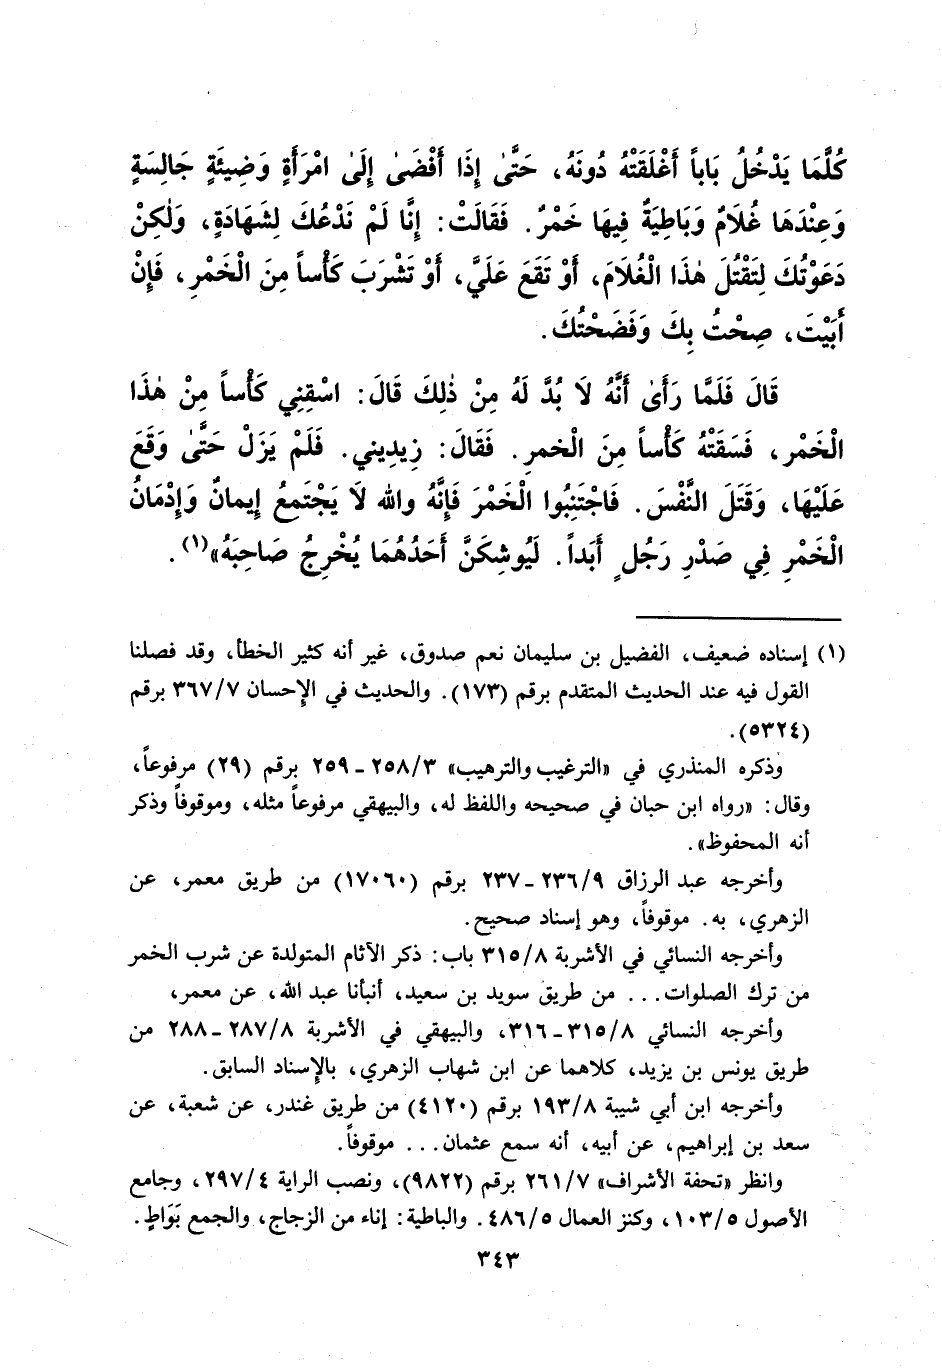 كُلَّمَا يَدْخُلُ بَاباً أَغْلَقَتْهُ دُونَهُ، حَتَّىٰ إِذَا أَفْضَىٰ إِلَىٰ امْرَأَةٍ وَضِيئَةٍ جَالِسَةٍ
وَعِنْدَهَا غُلَامٌ وَبَاطِيَةٌ فِيهَا خَمْرٌ. فَقَالَتْ: إِنَّا لَمْ نَدْعُكَ لِشَهَادَةٍ، وَلٰكِنْ
دَعَوْتُكَ لِتَقْتُلَ هٰذَا الْغُلَامَ، أَوْ تَقَعَ عَلَيَّ، أَوْ تَشْرَبَ كَأْساً مِنَ الْخَمْرِ، فَإِنْ
أَبَيْتَ، صِحْتُ بِكَ وَفَضَحْتُكَ.
قَالَ فَلَمَّا رَأَىٰ أَنَّهُ لَا بُدَّ لَهُ مِنْ ذٰلِكَ قَالَ: اسْقِنِي كَأْساً مِنْ هٰذَا
الْخَمْرِ، فَسَقَتْهُ كَأْساً مِنَ الْخمرِ. فَقَالَ: زِيدِيني. فَلَمْ يَزَلْ حَتَّىٰ وَقَعَ
عَلَيْهَا، وَقَتَلَ النَّفْسَ. فَاجْتَنِبُوا الْخَمْرَ فَإِنَّهُ والله لَا يَجْتَمِعُ إِيمانٌ وَإِدْمَانُ
الْخَمْرِ فِي صَدْرِ رَجُلٍ أَبَداً. لَيُوشِكَنَّ أَحَدُهُمَا يُخْرِجُ صَاحِبَهُ»(١).
(١) إسناده ضعيف، الفضيل بن سليمان نعم صدوق، غير أنه كثير الخطأ، وقد فصلنا
القول فيه عند الحديث المتقدم برقم (١٧٣). والحديث في الإحسان ٣٦٧/٧ برقم
(٥٣٢٤).
وذكره المنذري في «الترغيب والترهيب» ٢٥٨/٣ - ٢٥٩ برقم (٢٩) مرفوعاً،
وقال: «رواه ابن حبان في صحيحه واللفظ له، والبيهقي مرفوعاً مثله، وموقوفاً وذكر
أنه المحفوظ».
وأخرجه عبد الرزاق ٢٣٦/٩ - ٢٣٧ برقم (١٧٠٦٠) من طريق معمر، عن
الزهري، به. موقوفاً، وهو إسناد صحيح.
وأخرجه النسائي في الأشربة ٣١٥/٨ باب: ذكر الآثام المتولدة عن شرب الخمر
من ترك الصلوات... من طريق سويد بن سعيد، أنبأنا عبد الله، عن معمر،
وأخرجه النسائي ٣١٥/٨ - ٣١٦، والبيهقي في الأشربة ٢٨٧/٨ - ٢٨٨ من
طريق يونس بن يزيد، كلاهما عن ابن شهاب الزهري، بالإسناد السابق.
وأخرجه ابن أبي شيبة ١٩٣/٨ برقم (٤١٢٠) من طريق غندر، عن شعبة، عن
سعد بن إبراهيم، عن أبيه، أنه سمع عثمان... موقوفاً.
وانظر «تحفة الأشراف» ٢٦١/٧ برقم (٩٨٢٢)، ونصب الراية ٢٩٧/٤، وجامع
الأصول ١٠٣/٥، وكنز العمال ٤٨٦/٥. والباطية: إناء من الزجاج، والجمع بَوَاطٍ.
٣٤٣